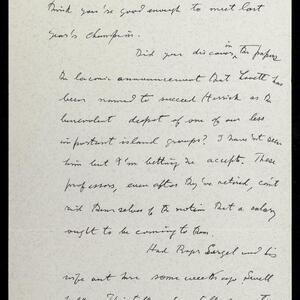 think you're good enough to meet last
year's champion.
Did you discover in the papers
the laconic announcement that Lovett has
been named to succeed Herrick as the
benevolent despot of one of our less
important island groups? I haven't seen
him but I'm betting he accepts. These
professors, even after they've retired, can't
rid themselves of the notion that a salary
ought to be coming to them.
Had Profs Sargel and his
wife out here some weeks ago